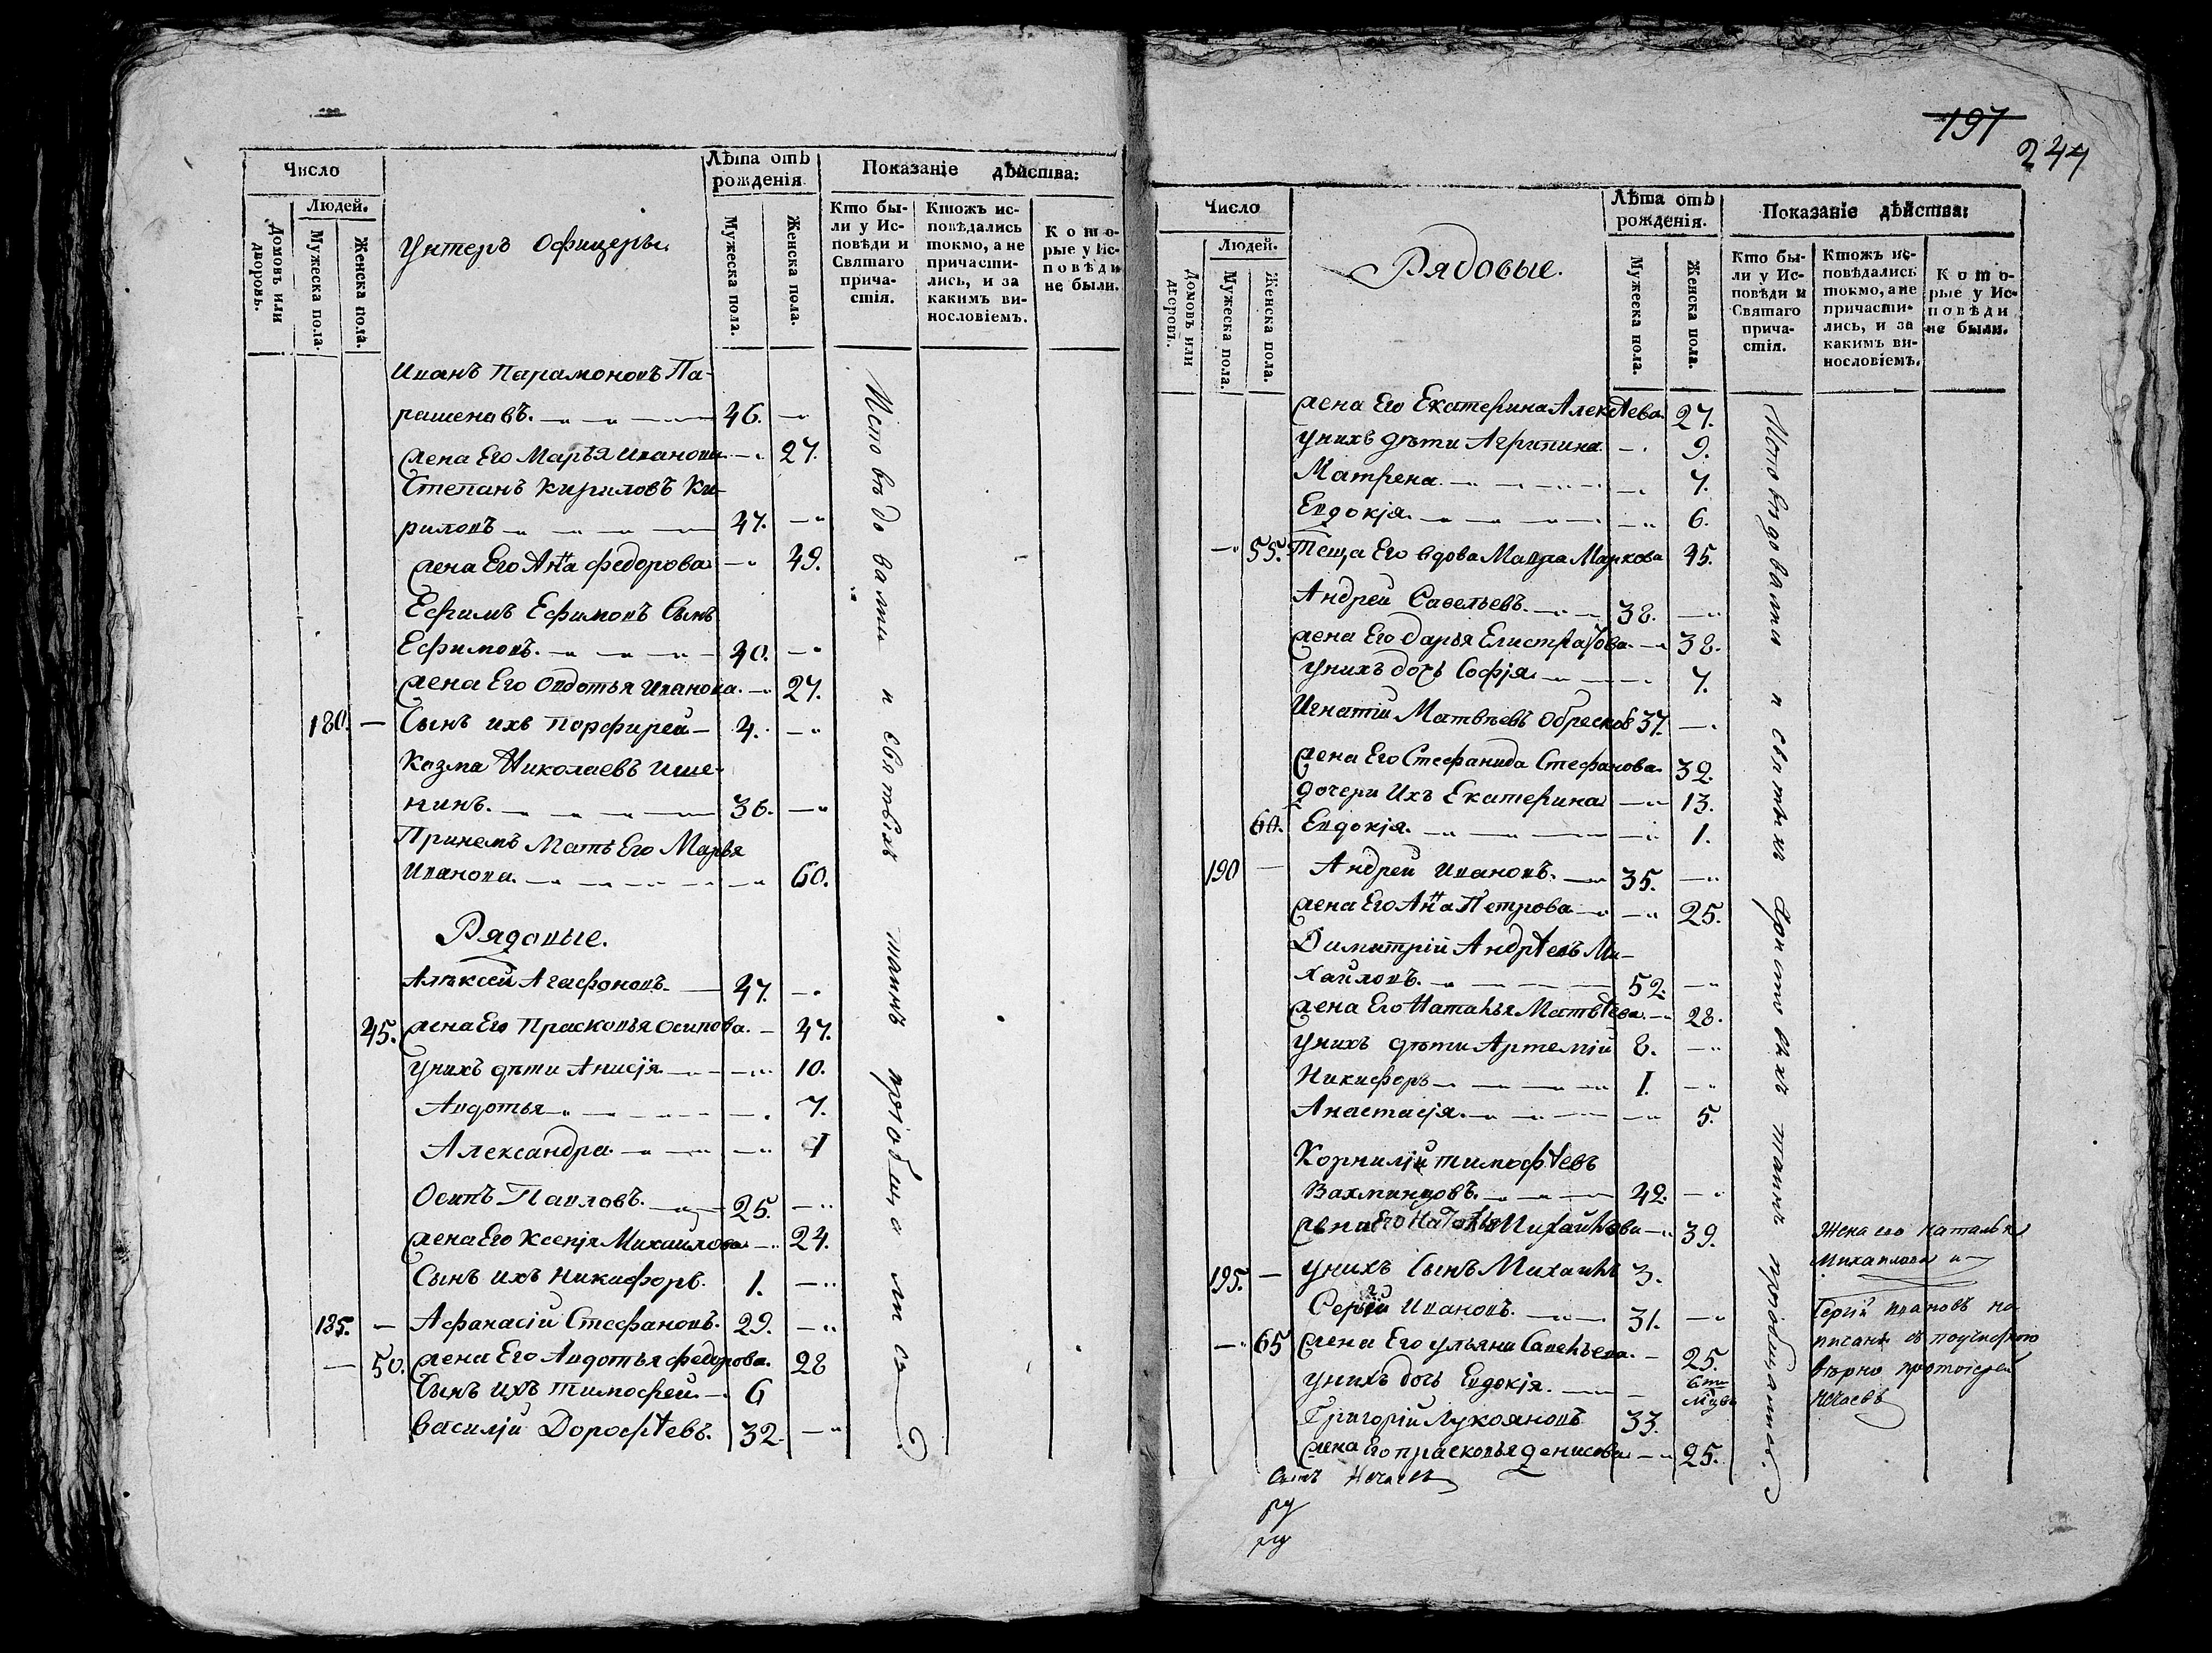 Число
Людей.
Домовъ или дворовъ.
Мужеска пола.
Женска пола.
Унтеръ Офицеры.
Лѣта отъ рожденія
Мужеска пола.
Женска пола.
Показаніе дѣйства:
Кто были у Исповѣди и Святаго причастія.
Ктожъ исповѣдались токмо, а не причастились, и за какимъ винословіемъ.
Которые у Исповѣди не были.
Иванъ Парамоновъ Па-
рашеновъ. 46.
жена Его Марья Иванова 27.
Степанъ Кириловъ Ки-
риловъ 47.
жена Его Анна Федорова 49.
Ефимъ Ефимовъ Сынъ
Ефимовъ. 40.
жена Его Овдотья Иванова. 27.
180. Сынъ ихъ Порфирей 4.
Козма Николаевъ Ише-
нинъ. 36.
Принемъ Мать Его Марья
Иванова. 60.
Рядовые.
Алѣксей Агафоновъ. 47.
45. жена Его Прасковья Осипова. 47.
унихъ дѣти Анисія 10.
Авдотья 7.
Александра 1
Осипъ Павловъ. 25.
жена Его Ксенія Михаилова 24.
Сынъ ихъ Никифоръ. 1.
185. Афанасіи Стефановъ. 29.
50. жена Его Авдотья Федорова. 28
Сынъ ихъ Тимофей 6
Василіи Дорофѣевъ. 32.
Исповѣдовали и святыхъ таинъ пріобщались
197
244
Число
Людей.
Домовъ или дворовъ.
Мужеска пола.
Женска пола.
Рядовые.
Лѣта отъ рожденія.
Мужеска пола.
Женска пола.
Показаніе дѣйства:
Кто были у Исповѣди и Святаго причастія.
Ктожъ исповѣдались токмо, а не причастились, и за какимъ винословіемъ.
Которые у Исповѣди не были.
жена Его Екатерина Алексѣева 27.
унихъ дѣти Агрипина 9.
Матрена 7.
Евдокія. 6.
55. Теща Его вдова Мавра Маркова 45.
Андреи Савельевъ. 38.
жена Его Дарья Елистратова 38.
унихъ дочь Софія. 7.
Игнатіи Матвѣевъ Обресков 37.
жена Его Стефанида Стефанова. 32.
дочери Ихъ Екатерина 13.
60. Евдокія. 1.
190 Андреи Ивановъ. 35.
жена Его Анна Петрова 25.
Димитріи Андрѣевъ Ми-
хайловъ. 52.
жена Его Наталья Матвѣева 28.
унихъ дѣти Артеміи 8.
Никифоръ 1.
Анастасія. 5.
Корниліи Тимофѣевъ
Вахминцовъ. 42.
жена Его Наталья Михайлова 39.
195. унихъ Сынъ Михаилъ 3.
Сергіи Ивановъ. 31.
65 жена Его Ульяна Савельева. 25.
унихъ дочь Евдокія. 6ти мѣсь
Григоріи Лукояновъ 33.
жена Его Прасковья Денисова 25.
Исповѣдовались и святыхъ Христовыхъ таинъ пріобщались.
Жена его Наталья
Михаилова и
Сергій Ивановъ на-
писаны
вѣрно протоіерей
Нечаевъ
Нечаевъ